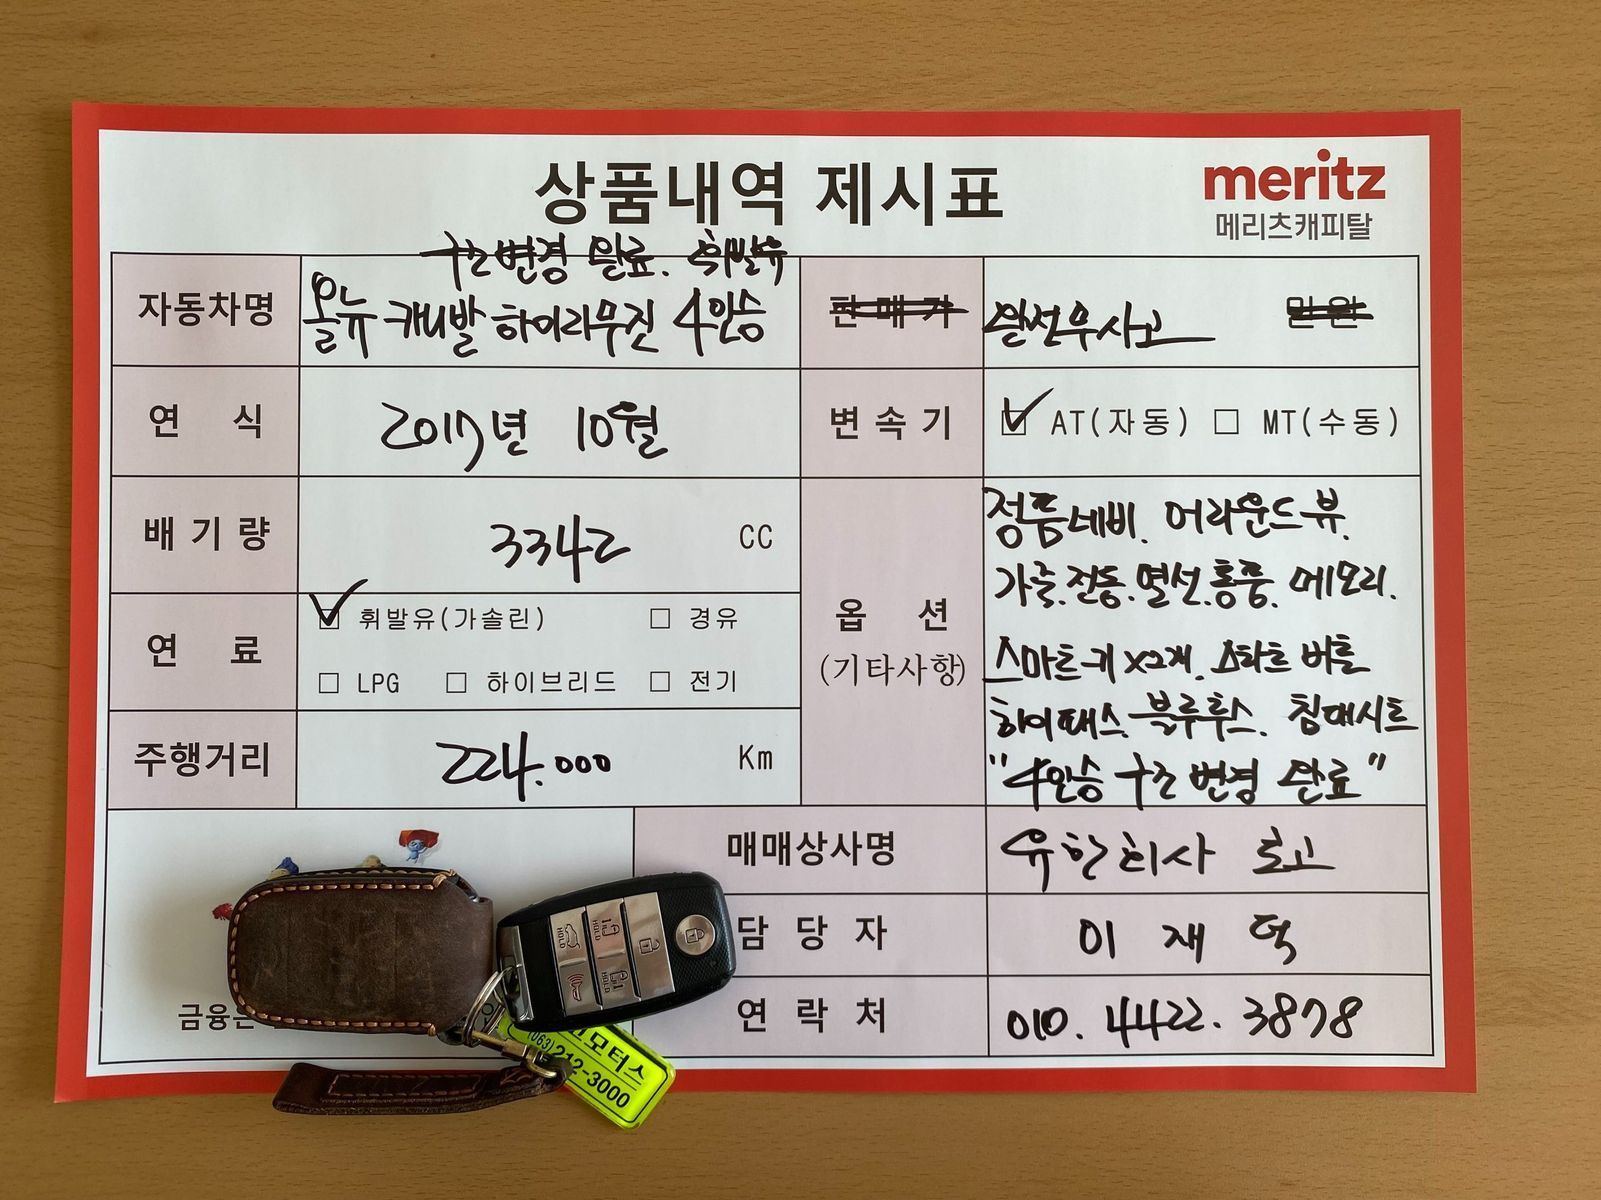 상품내역 제시표
meritz
메리츠캐피탈
구조변경 완료. 휘발유
자동차명
올뉴 캐니발 하이리무진 4인승
판매가
완전무사고
만원
연 식
2017년 10월
변속기
AT(자동)
MT(수동)
배기량
3342
CC
연 료
휘발유(가솔린)
경유
LPG
하이브리드
전기
주행거리
224.000
Km
옵 션
(기타사항)
정품네비. 어라운드뷰.
가죽.전동.열선.통풍. 메모리.
스마트키x2개. 스타트 버튼
하이패스. 블루투스. 침대시트
"4인승 구조변경 완료"
매매상사명
유한회사 최고
담 당 자
이 재 덕
연 락 처
010. 4422. 3878
금융은
HOLD
HOLD
HOLD
모터스
(063)212-3000